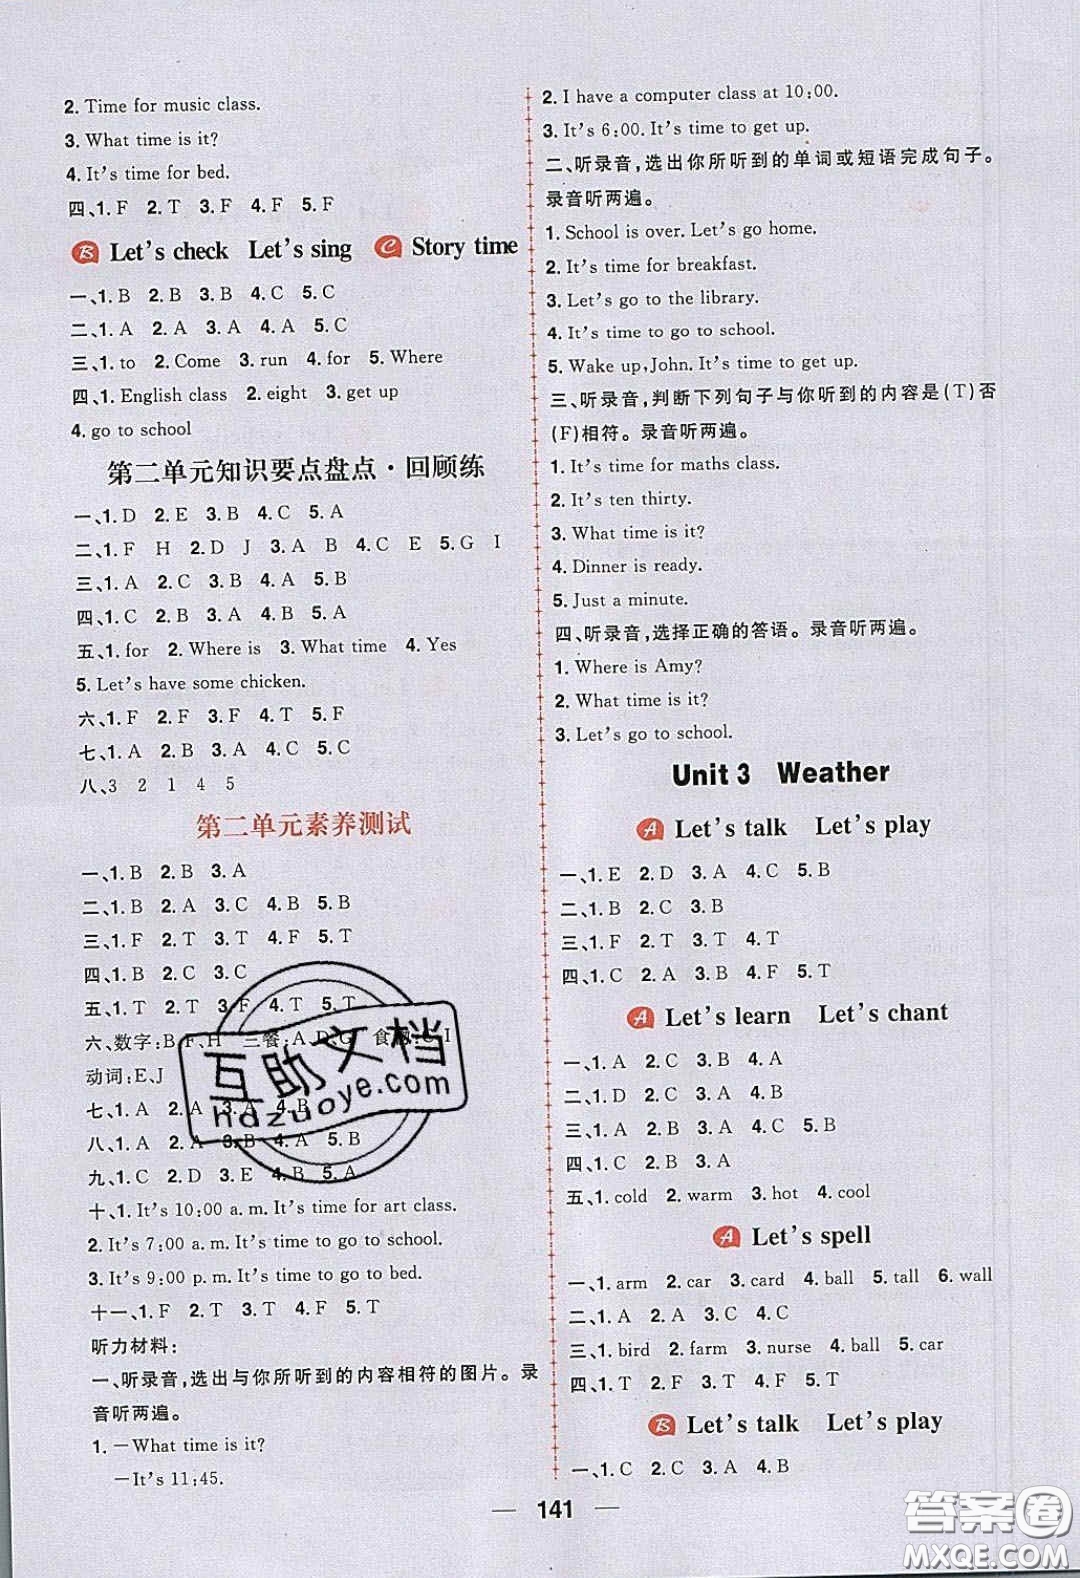 2. Time for music class.
3. What time is it?
4. It's time for bed.
四、1. F 2. T 3. F 4. F 5. F
B Let's check Let's sing C Story time
一、1. B 2. B 3. B 4. C 5. C
二、1. A 2. A 3. A 4. A 5. C
三、1. to 2. Come 3. run 4. for 5. Where
四、1. English class 2. eight 3. get up
4. go to school
第二单元知识要点盘点·回顾练
一、1. D 2. E 3. B 4. C 5. A
二、1. F H 2. D J 3. A B 4. C E 5. G I
三、1. A 2. C 3. B 4. A 5. B
四、1. C 2. B 3. A 4. B 5. A
五、1. for 2. Where is 3. What time 4. Yes
5. Let's have some chicken.
六、1. F 2. F 3. F 4. T 5. F
七、1. A 2. B 3. A 4. C 5. C
八、3 2 1 4 5
第二单元素养测试
一、1. B 2. B 3. A
二、1. B 2. A 3. C 4. B 5. B
三、1. F 2. T 3. T 4. F 5. T
四、1. B 2. C 3. C
五、1. T 2. T 3. F 4. T 5. T
六、数字:B、F、H 三餐:A、D、G 食物:C、I
动词:E、J
七、1. A 2. A 3. A 4. B
八、1. A 2. A 3. B 4. A 5. B
九、1. C 2. D 3. E 4. B 5. A
十、1. It's 10:00 a. m. It's time for art class.
2. It's 7:00 a. m. It's time to go to school.
3. It's 9:00 p. m. It's time to go to bed.
十一、1. F 2. T 3. T 4. F 5. T
听力材料:
一、听录音,选出与你所听到的内容相符的图片。录
音听两遍。
1. —What time is it?
—It's 11:45.
2. I have a computer class at 10:00.
3. It's 6:00. It's time to get up.
二、听录音,选出你所听到的单词或短语完成句子。
录音听两遍。
1. School is over. Let's go home.
2. It's time for breakfast.
3. Let's go to the library.
4. It's time to go to school.
5. Wake up,John. It's time to get up.
三、听录音,判断下列句子与你听到的内容是(T)否
(F)相符。录音听两遍。
1. It's time for maths class.
2. It's ten thirty.
3. What time is it?
4. Dinner is ready.
5. Just a minute.
四、听录音,选择正确的答语。录音听两遍。
1. Where is Amy?
2. What time is it?
3. Let's go to school.
Unit 3 Weather
A Let's talk Let's play
一、1. E 2. D 3. A 4. C 5. B
二、1. B 2. C 3. B
三、1. F 2. T 3. T 4. T
四、1. C 2. A 3. B 4. F 5. T
A Let's learn Let's chant
一、1. A 2. C 3. B 4. B
二、1. D 2. C 3. A 4. B
三、1. C 2. A 3. A 4. A 5. B
四、1. C 2. B 3. C
五、1. cold 2. warm 3. hot 4. cool
A Let's spell
一、1. arm 2. car 3. card 4. ball 5. tall 6. wall
二、1. A 2. A 3. C 4. C
三、1. bird 2. farm 3. nurse 4. ball 5. car
四、1. T 2. F 3. T 4. F 5. T
B Let's talk Let's play
一、1. C 2. C 3. A 4. B
141
互助文档
hdzuoye.com
答案圈
MXQE.COM